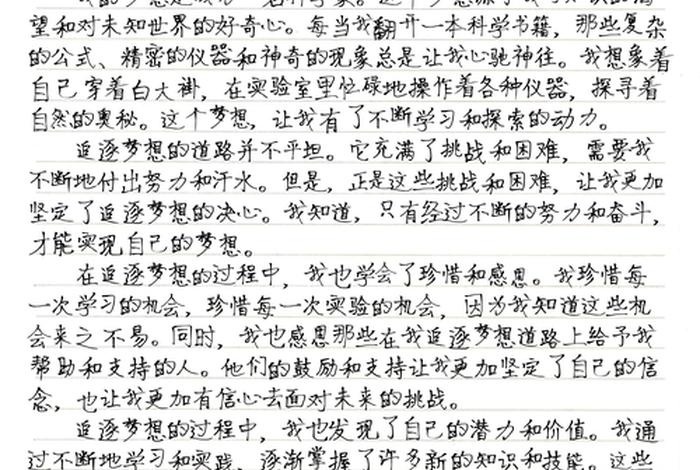 我的梦想是成为一名科学家。这个梦想源于我对知识的渴
望和对未知世界的好奇心。每当我翻开一本科学书籍，那些复杂
的公式、精密的仪器和神奇的现象总是让我心驰神往。我想象着
自己穿着白大褂，在实验室里忙碌地操作着各种仪器，探寻着
自然的奥秘。这个梦想，让我有了不断学习和探索的动力。
追逐梦想的道路并不平坦。它充满了挑战和困难，需要我
不断地付出努力和汗水。但是，正是这些挑战和困难，让我更加
坚定了追逐梦想的决心。我知道，只有经过不断的努力和奋斗，
才能实现自己的梦想。
在追逐梦想的过程中，我也学会了珍惜和感恩。我珍惜每
一次学习的机会，珍惜每一次实验的机会，因为我知道这些机
会来之不易。同时，我也感恩那些在我追逐梦想道路上给予我
帮助和支持的人。他们的鼓励和支持让我更加坚定了自己的信
念，也让我更加有信心去面对未来的挑战。
追逐梦想的过程中，我也发现了自己的潜力和价值。我通
过不断地学习和实践，逐渐掌握了许多新的知识和技能。这些